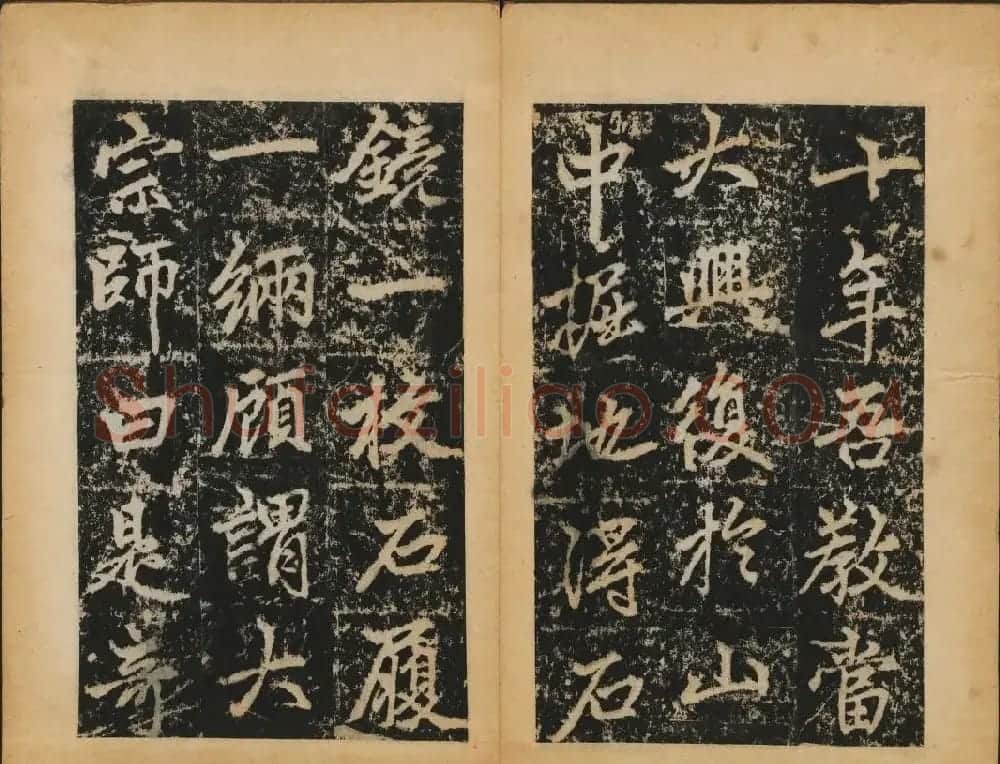 十年吾教當
大興復於山
中掘地得石
鏡一枚石履
一緉顧謂大
宗師曰是奇
Shufaziliao.COM